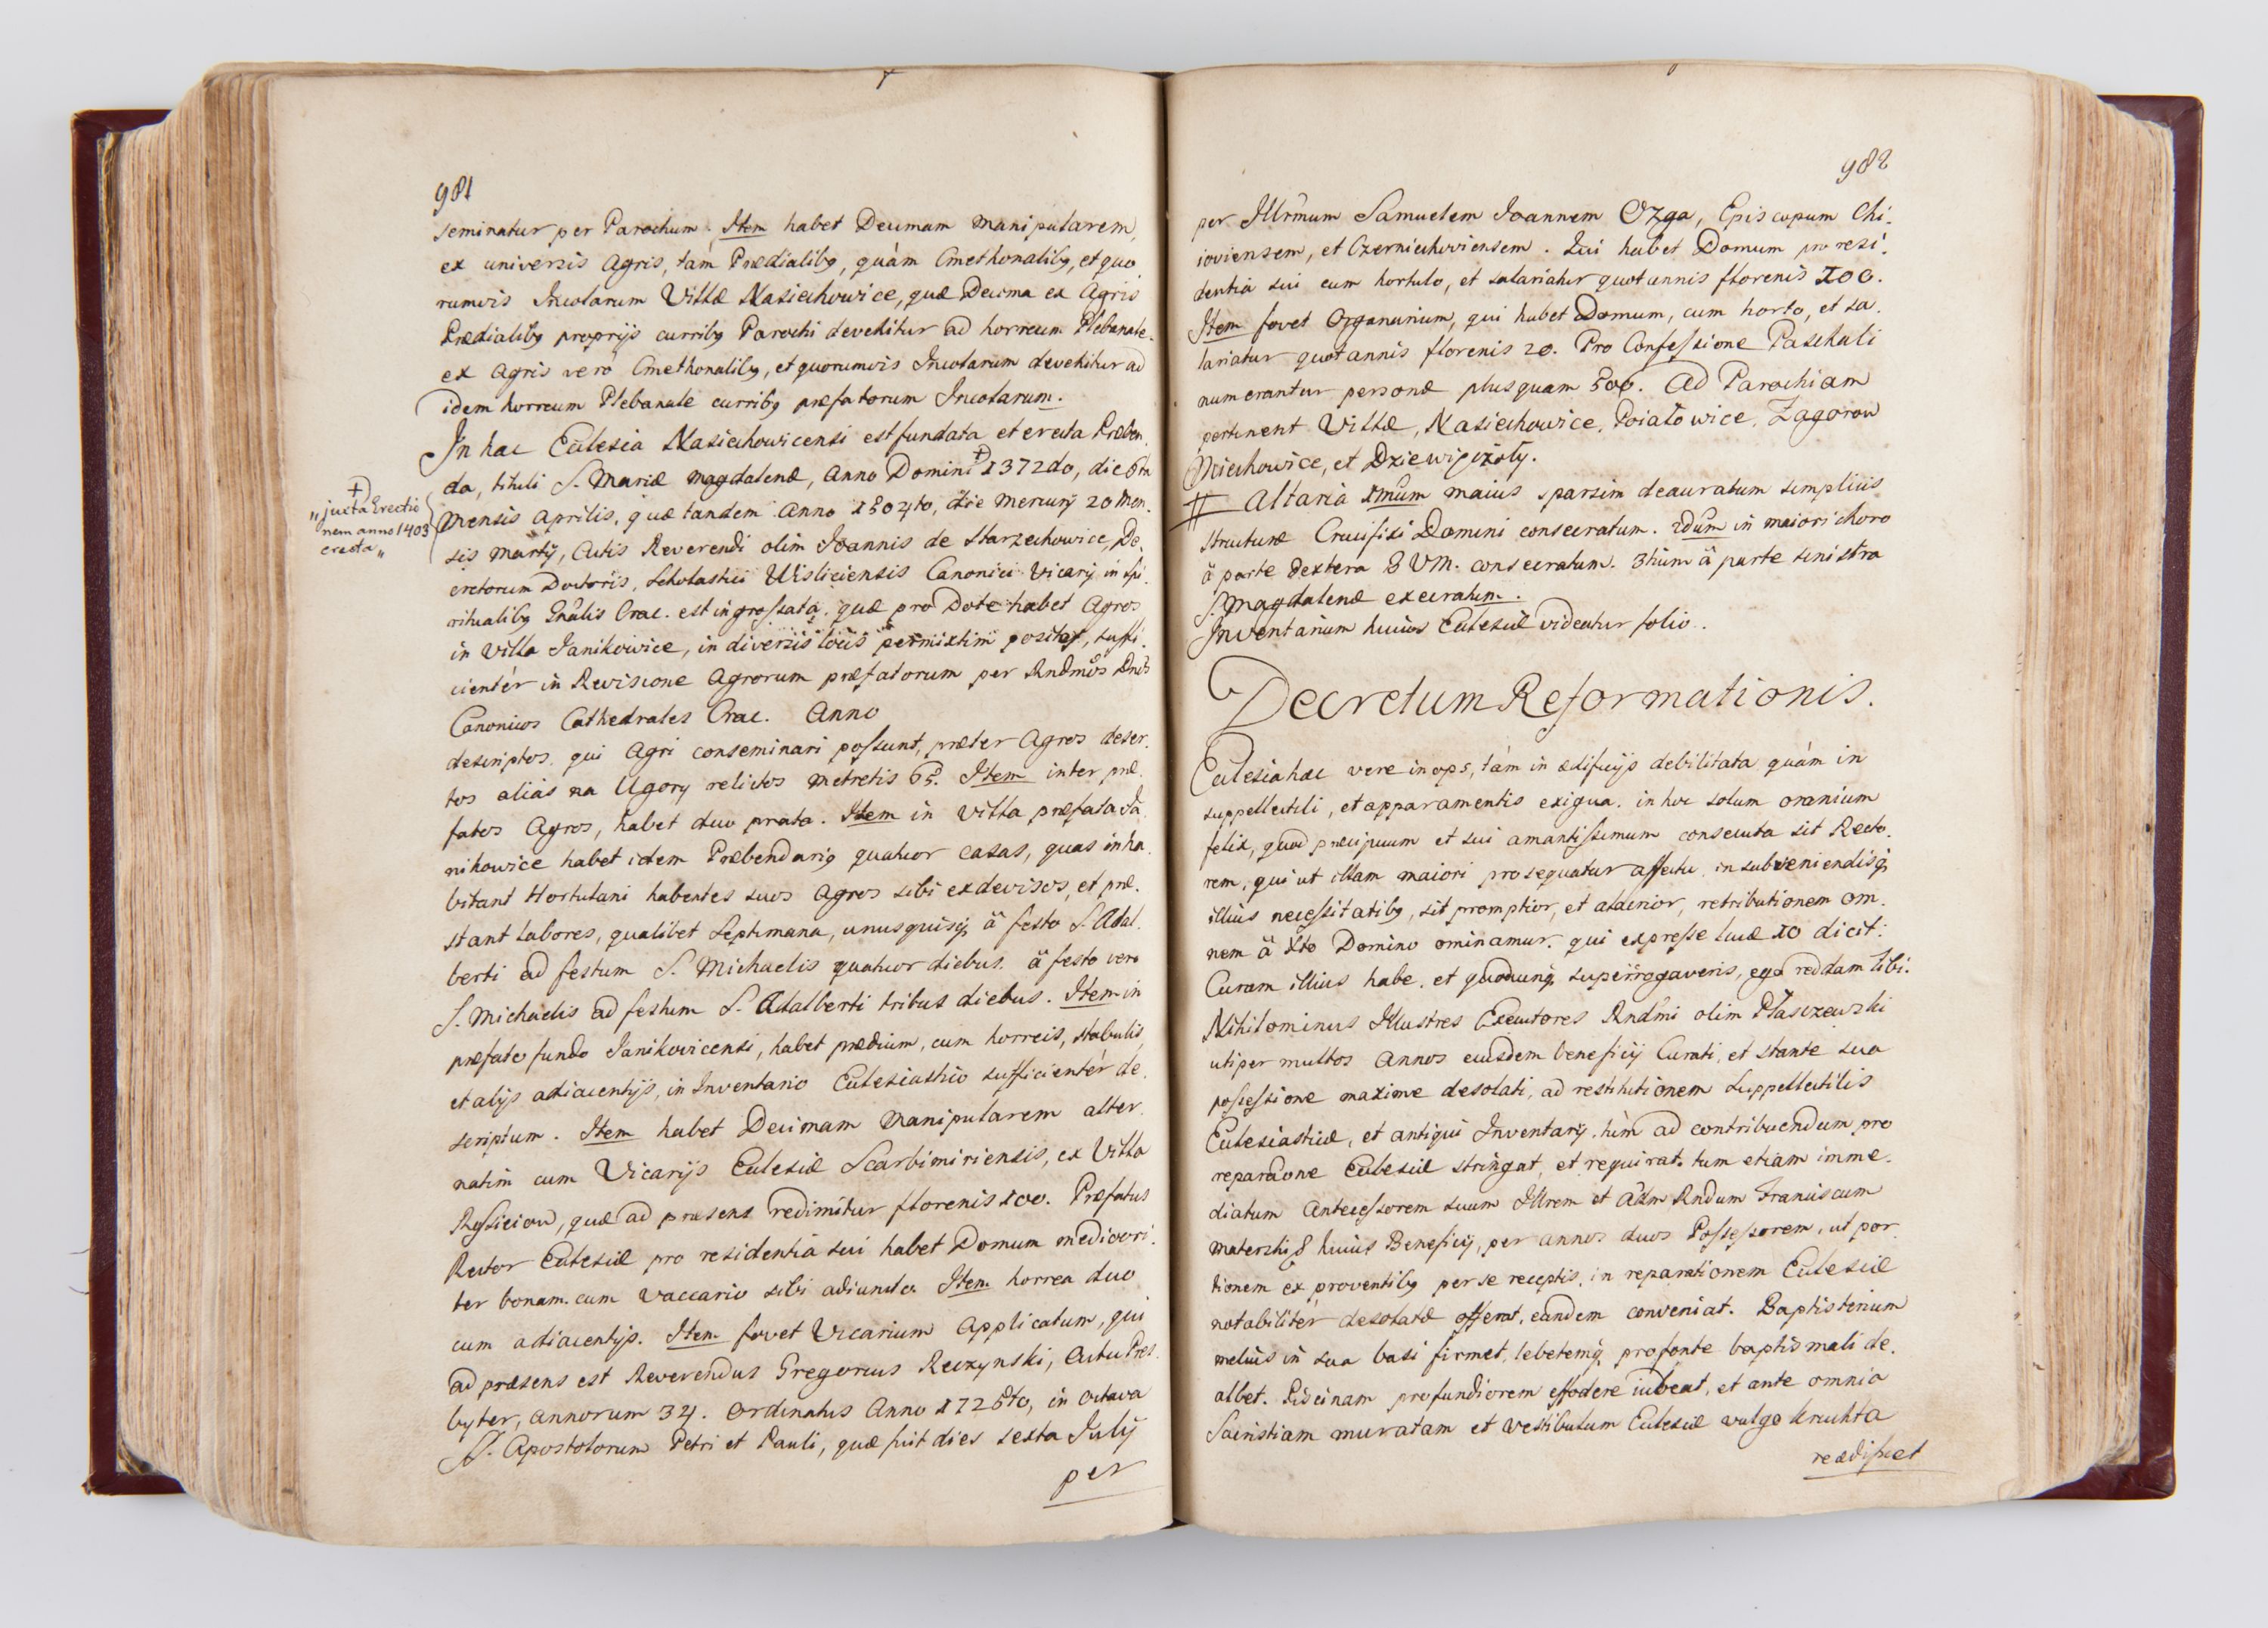 981
seminatur per Parochum. Item habet Decimam manipularem,
ex universis Agris, tam Prædialibꝫ, quàm Cmethonalibꝫ, et quo
rumvis Incolarum Villæ Nasiechowice, quæ Decima ex Agris
Prædialibꝫ proprijs curribꝫ Parochi devehitur ad horreum Plebanale.
ex Agris vero Cmethonalibꝫ, et quorumvis Incolarum devehitur ad
idem horreum Plebanale curribꝫ præfatorum Incolarum.
In hac Ecclesia Nasiechowicensi est fundata et erecta Præben.
da, tituli S. Mariæ Magdalenæ, Anno Domini 1372do, die 6ta
Mensis Aprilis, quæ tandem Anno 1504to, die Mercurij 20 Men.
sis Martij, Actis Reverendi olim Ioannis de Starzechowice, De.
cretorum Doctoris, Scholastici Wisliciensis Canonici Vicarij in Spi.
ritualibꝫ Gnālis Crac. est ingrossata, quæ pro Dote habet Agros
in Villa Ianikowice, in diversis locis permixtim positos, suffi.
cientèr in Revisione Agrorum præfatorum per Rndmos Dnos
Canonicos Cathedrales Crac. Anno
descriptos. qui Agri conseminari possunt, præter Agros deser.
tos aliàs na Ugory relictos metretis 65. Item inter præ.
fatos Agros, habet duo prata. Item in Villa præfata Ia
nikowice habet idem Præbendariꝫ quatuor casas, quas inha.
bitant Hortulani habentes suos Agros sibi ex devisos, et præ.
stant labores, qualibet Septimana, unusquisqꝫ à festo S. Adal.
berti ad festum S. Michaelis quatuor diebus. à festo vero
S. Michaelis ad festum S. Adalberti tribus diebus. Item in
præfato fundo Ianikovicensi, habet prædium, cum horreis, stabulis,
et alijs adiacentijs, in Inventario Ecclesiastico sufficientèr de.
scriptum. Item habet Decimam Manipularem alter.
natim cum Vicarijs Ecclesiæ Scarbimiriensis, ex Villa
Rosieiow, quæ ad præsens redimitur florenis 100. Præfatus
Rector Ecclesiæ pro residentia sui habet Domum mediocri.
ter bonam. cum vaccario sibi adiuncto. Item horrea duo
cum adiacentijs. Item fovet Vicarium Applicatum, qui
ad præsens est Reverendus Gregorius Reczynski, Actu Pres.
byter, annorum 34. Ordinatus Anno 1726to, in Octava
SS. Apostolorum Petri et Pauli, quæ fuit dies sexta Iulij
per
„juxta Erectio
nem anno 1403
erecta„
982
per Illrmum Samuelem Ioannem Ozga, Episcopum Chi.
ioviensem, et Czerniechoviensem. Qui habet Domum pro resi.
dentia sui cum hortulo, et salariatur quotannis florenis 100.
Item fovet Organarium, qui habet Domum, cum horto, et sa.
lariatur quotannis florenis 20. Pro Confessione Paschali
numerantur personæ plusquam 500. Ad Parochiam
pertinent Villæ, Nasiechowice, Poiałowice, Zagorow
Miechowice, et Dziewięczoły.
Altaria 1mum maius sparsim deauratum simplicis
structuræ Crucifixi Domini consecratum. 2dum in maiori choro
à parte dextera B V M. consecratum. 3tium à parte sinistra
S. Magdalenæ execratum.
Inventarium huius Ecclesiæ videatur folio.
Decretum Reformationis.
Ecclesia hæc vere inops, tàm in ædificijs debilitata quàm in
suppellectili, et apparamentis exigua. in hoc solum omnium
felix, quod præcipuum et sui amantissimum consecuta sit Recto.
rem, qui ut illam maiori prosequatur affectu. in subveniendisqꝫ
illius necessitatibꝫ, sit promptior, et alacrior, retributionem om.
nem à Xto Domino ominamur. qui expresse Lucæ 10 dicit:
Curam illius habe. et quodcunqꝫ superrogaveris, ego reddam tibi.
Nihilominus Illustres Executores Rndmi olim Płasczewski
uti per multos Annos eiusdem beneficij Curati, et stante sua
possessione maxime desolati, ad restitutionem Suppellectilis
Ecclesiasticæ, et antiqui Inventarij. tùm ad contribuendum pro
reparaōne Ecclesiæ stringat, et requirat. tum etiam imme.
diatum Antecessorem suum Illrem et Adm Rndum Franciscum
huius Beneficij, per annos duos Possessorem, ut por.
tionem ex proventibꝫ per se receptis, in reparationem Ecclesiæ
notabilitèr desolatæ offerat, eundem conveniat. Baptisterium
melius in sua basi firmet, lebetemqꝫ pro fonte baptismali de.
albet. Piscinam profundiorem effodere iubeat, et ante omnia
Sacristiam muratam et vestibulum Ecclesiæ vulgo kruchta
reædificet